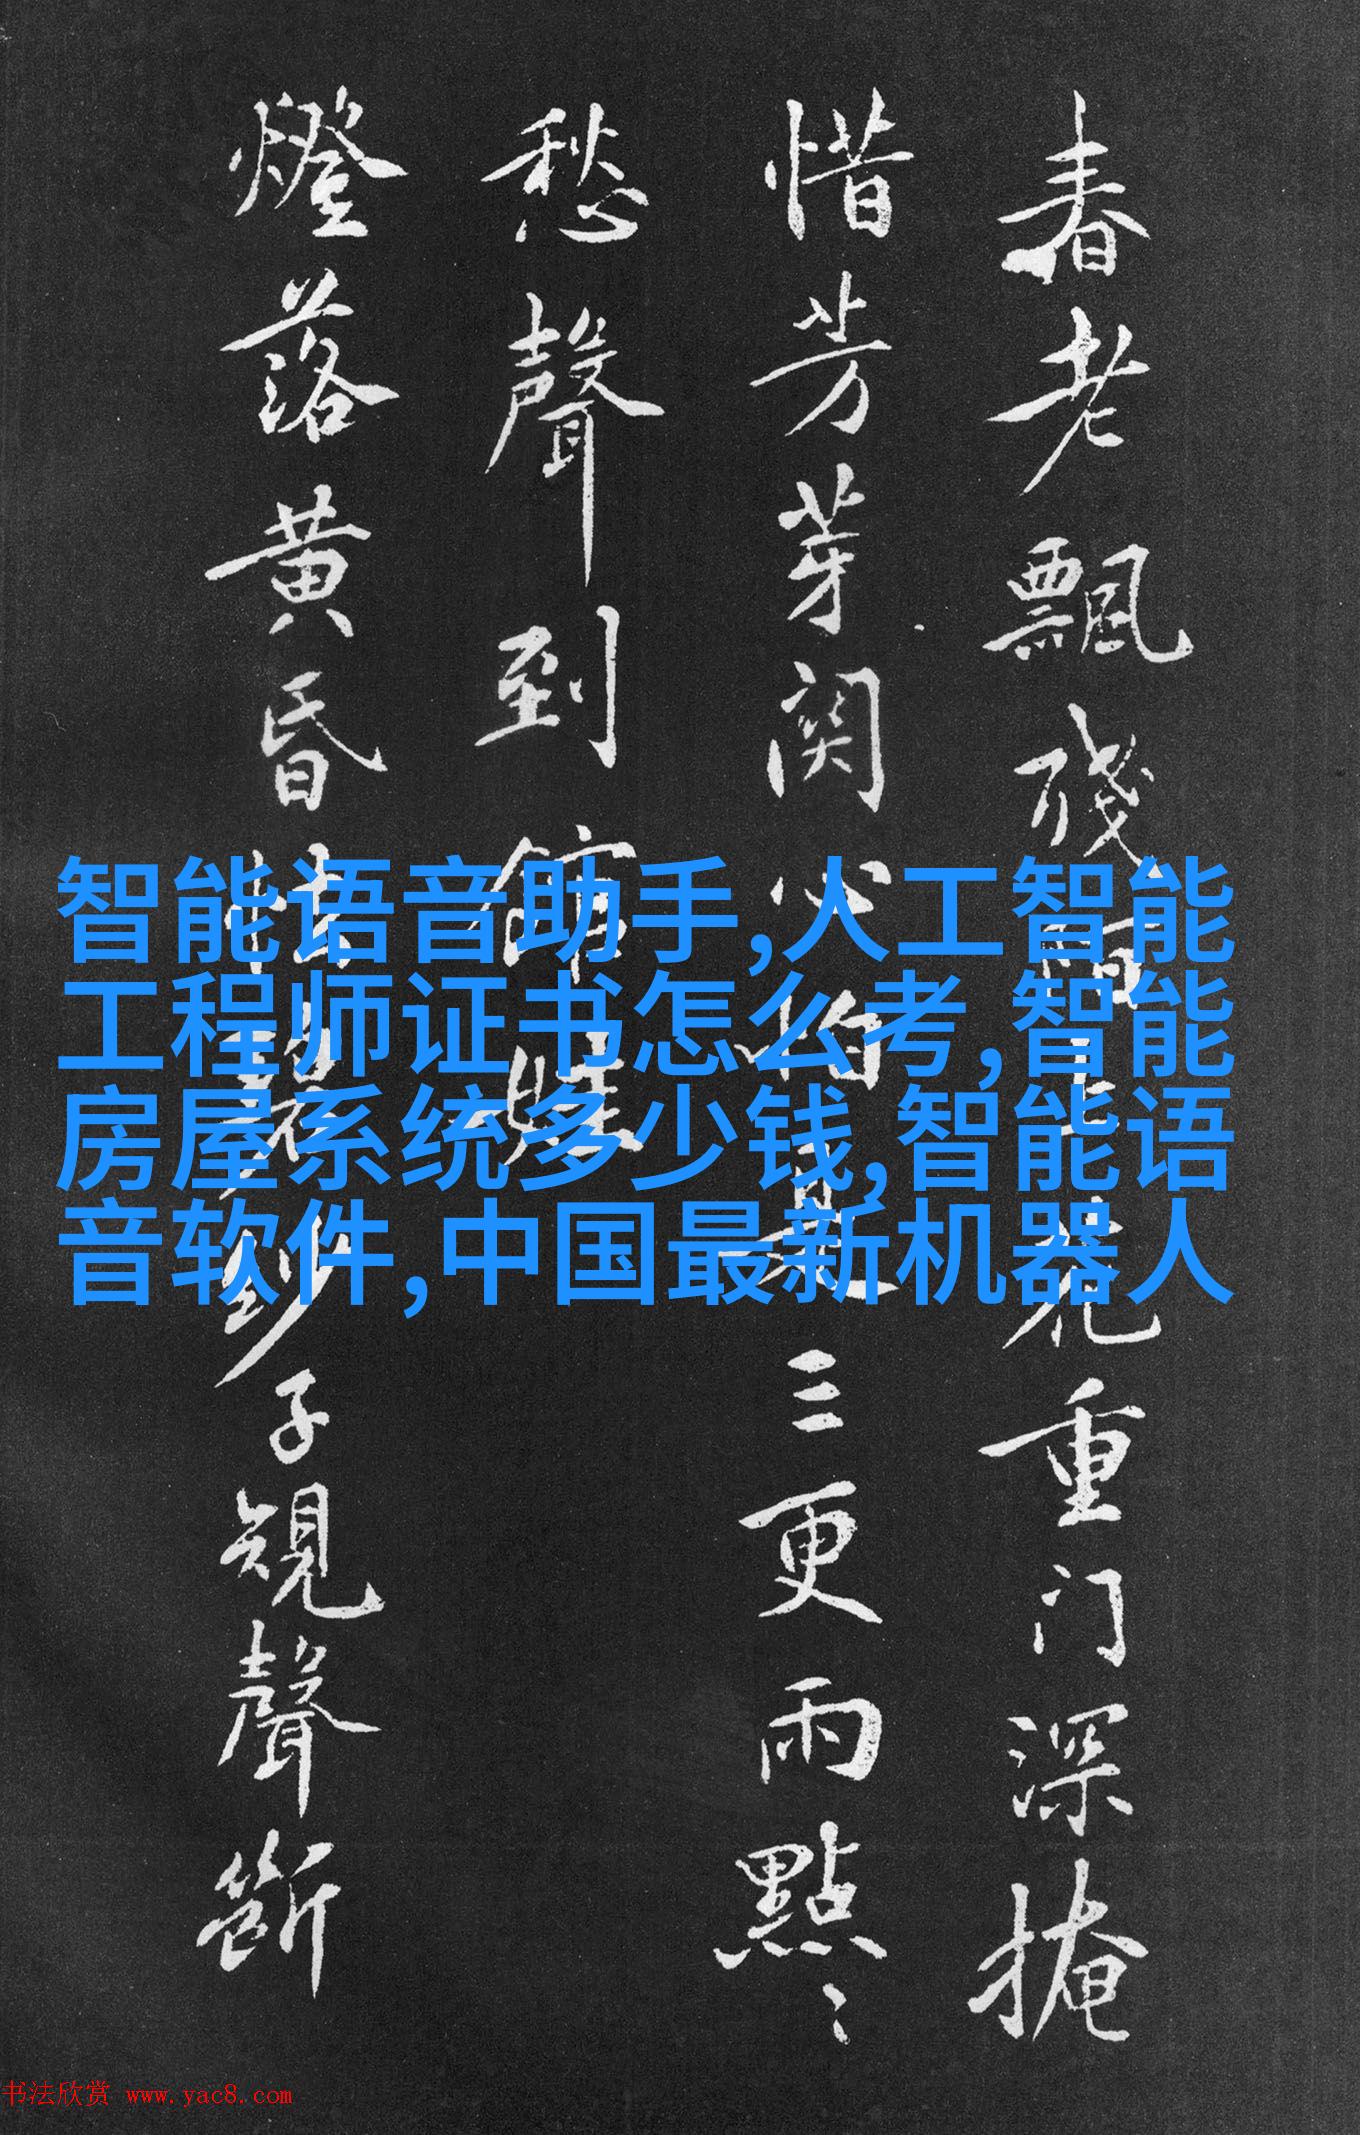 春老飄殘階上花重门深掩
惜芳芽関心怕是三更雨點〻
愁聲到
燈落黄昏子規聲斷
智能语音助手,人工智能
工程师证书怎么考,智能
房屋系统多少钱,智能语
音软件,中国最新机器人
书法欣赏 www.yac8.com